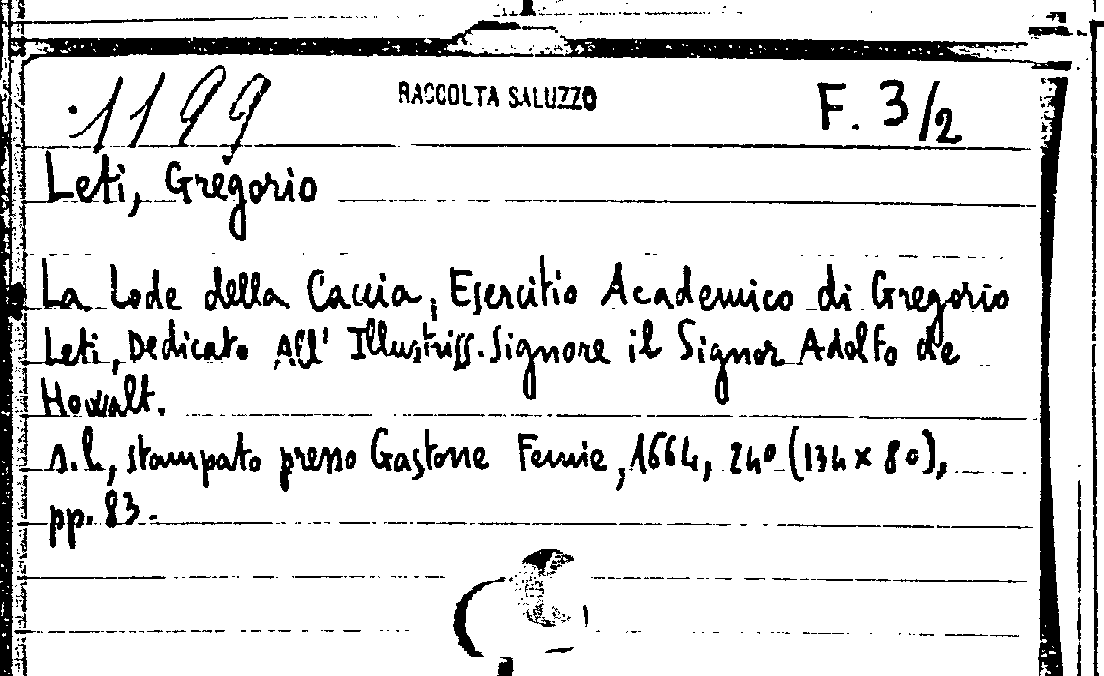 1199 RACCOLTA SALUZZO F. 3/2
Leti, Gregorio
La Lode della Caccia, Esercitio Academico di Gregorio
Leti, Dedicato All' Illustriss. Signore il Signor Adolfo de
Howalt.
s.l., stampato presso Gastone Femie, 1664, 24° (134 x 80),
pp. 83.